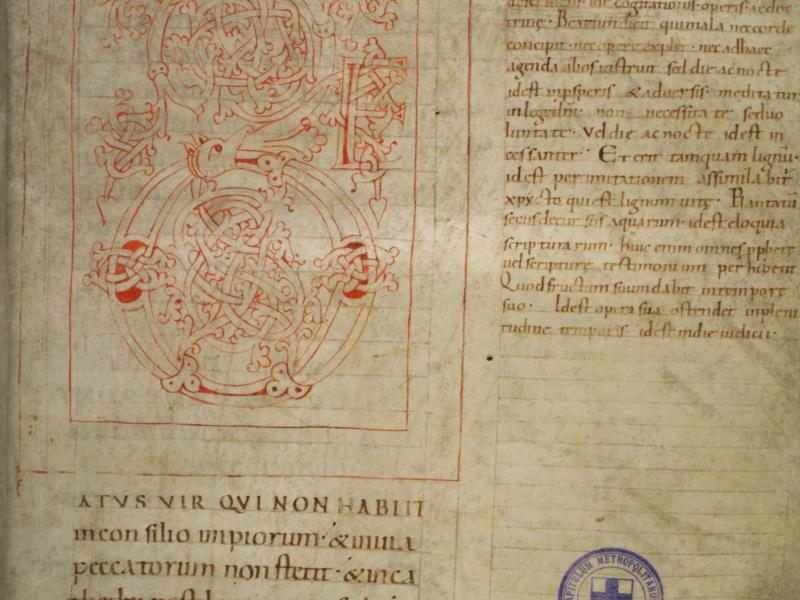 trinę · Beatum dicit qui mala nec corde
concipit · nec opere explet · nec adhaec
agenda alios instruit sed die ac nocte
idest in prosperis & aduersis meditatur
in lege dni · non necessitate sed uo
luntate · Vel die ac nocte idest in
cessanter · Et erit tamquam lignu ·
idest per imitationem assimilabit
xpicto qui est lignum uitę · Plantatu
secus decursus aquarum · idest eloquia
scripturarum · huic enim omnes pphete
uel scripturę testimonium perhibent
Quod fructum suum dabit in tempore
suo · Idest opera sua ostendet in pleni
tudine temporis idest in die iudicii ·
B E
ATUS VIR QUI NON HABIIT
in consilio impiorum · & in uia
peccatorum non stetit · & in ca
CAPITULUM METROPOLITANUM